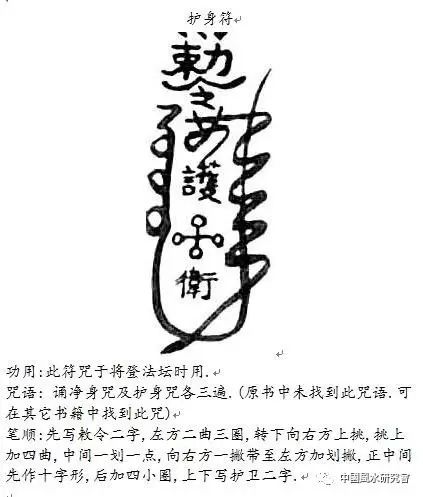 护身符
勅令
護
衛
功用:此符咒于将登法坛时用.
咒语: 诵净身咒及护身咒各三遍.(原书中未找到此咒语.可
在其它书籍中找到此咒)
笔顺:先写敕令二字,左方二曲三圈,转下向右方上挑,挑上
加四曲,中间一划一点,向右方一撇带至左方加划撇,正中间
先作十字形,后加四小圈,上下写护卫二字.
中國風水研究會